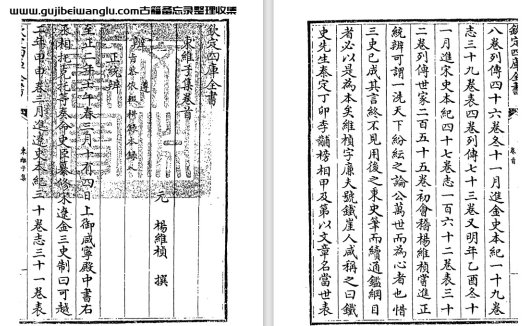 www.gujibeiwanglu.com古籍备忘录整理收集
欽定四庫全書
東維子集卷首
元 楊維楨 撰
辨
正統辨
至正二年壬午春三月十有四日上御咸寧殿中書右
丞相托克托等奏命史臣纂修宋遼金三史制曰可越
二年甲申春三月進遼史本紀三十卷志三十一卷表
東維子集
欽定四庫全書
卷首
八卷列傳四十六卷冬十一月進金史本紀一十九卷
志三十九卷表四卷列傳七十三卷又明年乙酉冬十
一月進宋史本紀四十七卷志一百六十二卷表三十
二卷列傳世家二百五十五卷初會稽楊維楨嘗進正
統辨可謂一洗天下紛紜之論公萬世而為心者也惜
三史已成其言終不見用後之秉史筆而續通鑑綱目
者必以是為本矣維楨字廉夫號鐵崖人咸稱之曰鐵
史先生泰定丁卯李黼榜相甲及第以文章名當世表